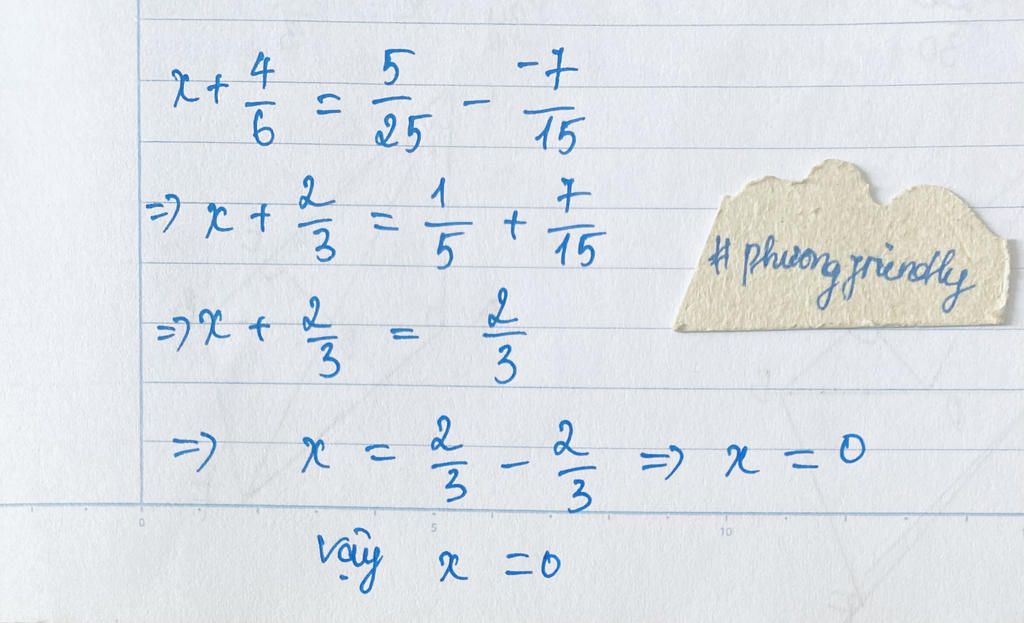 x + 4/6 = 5/25 - -7/15
=> x + 2/3 = 1/5 + 7/15
# phương friendly
=> x + 2/3 = 2/3
=> x = 2/3 - 2/3 => x = 0
0 5 10
Vậy x = 0